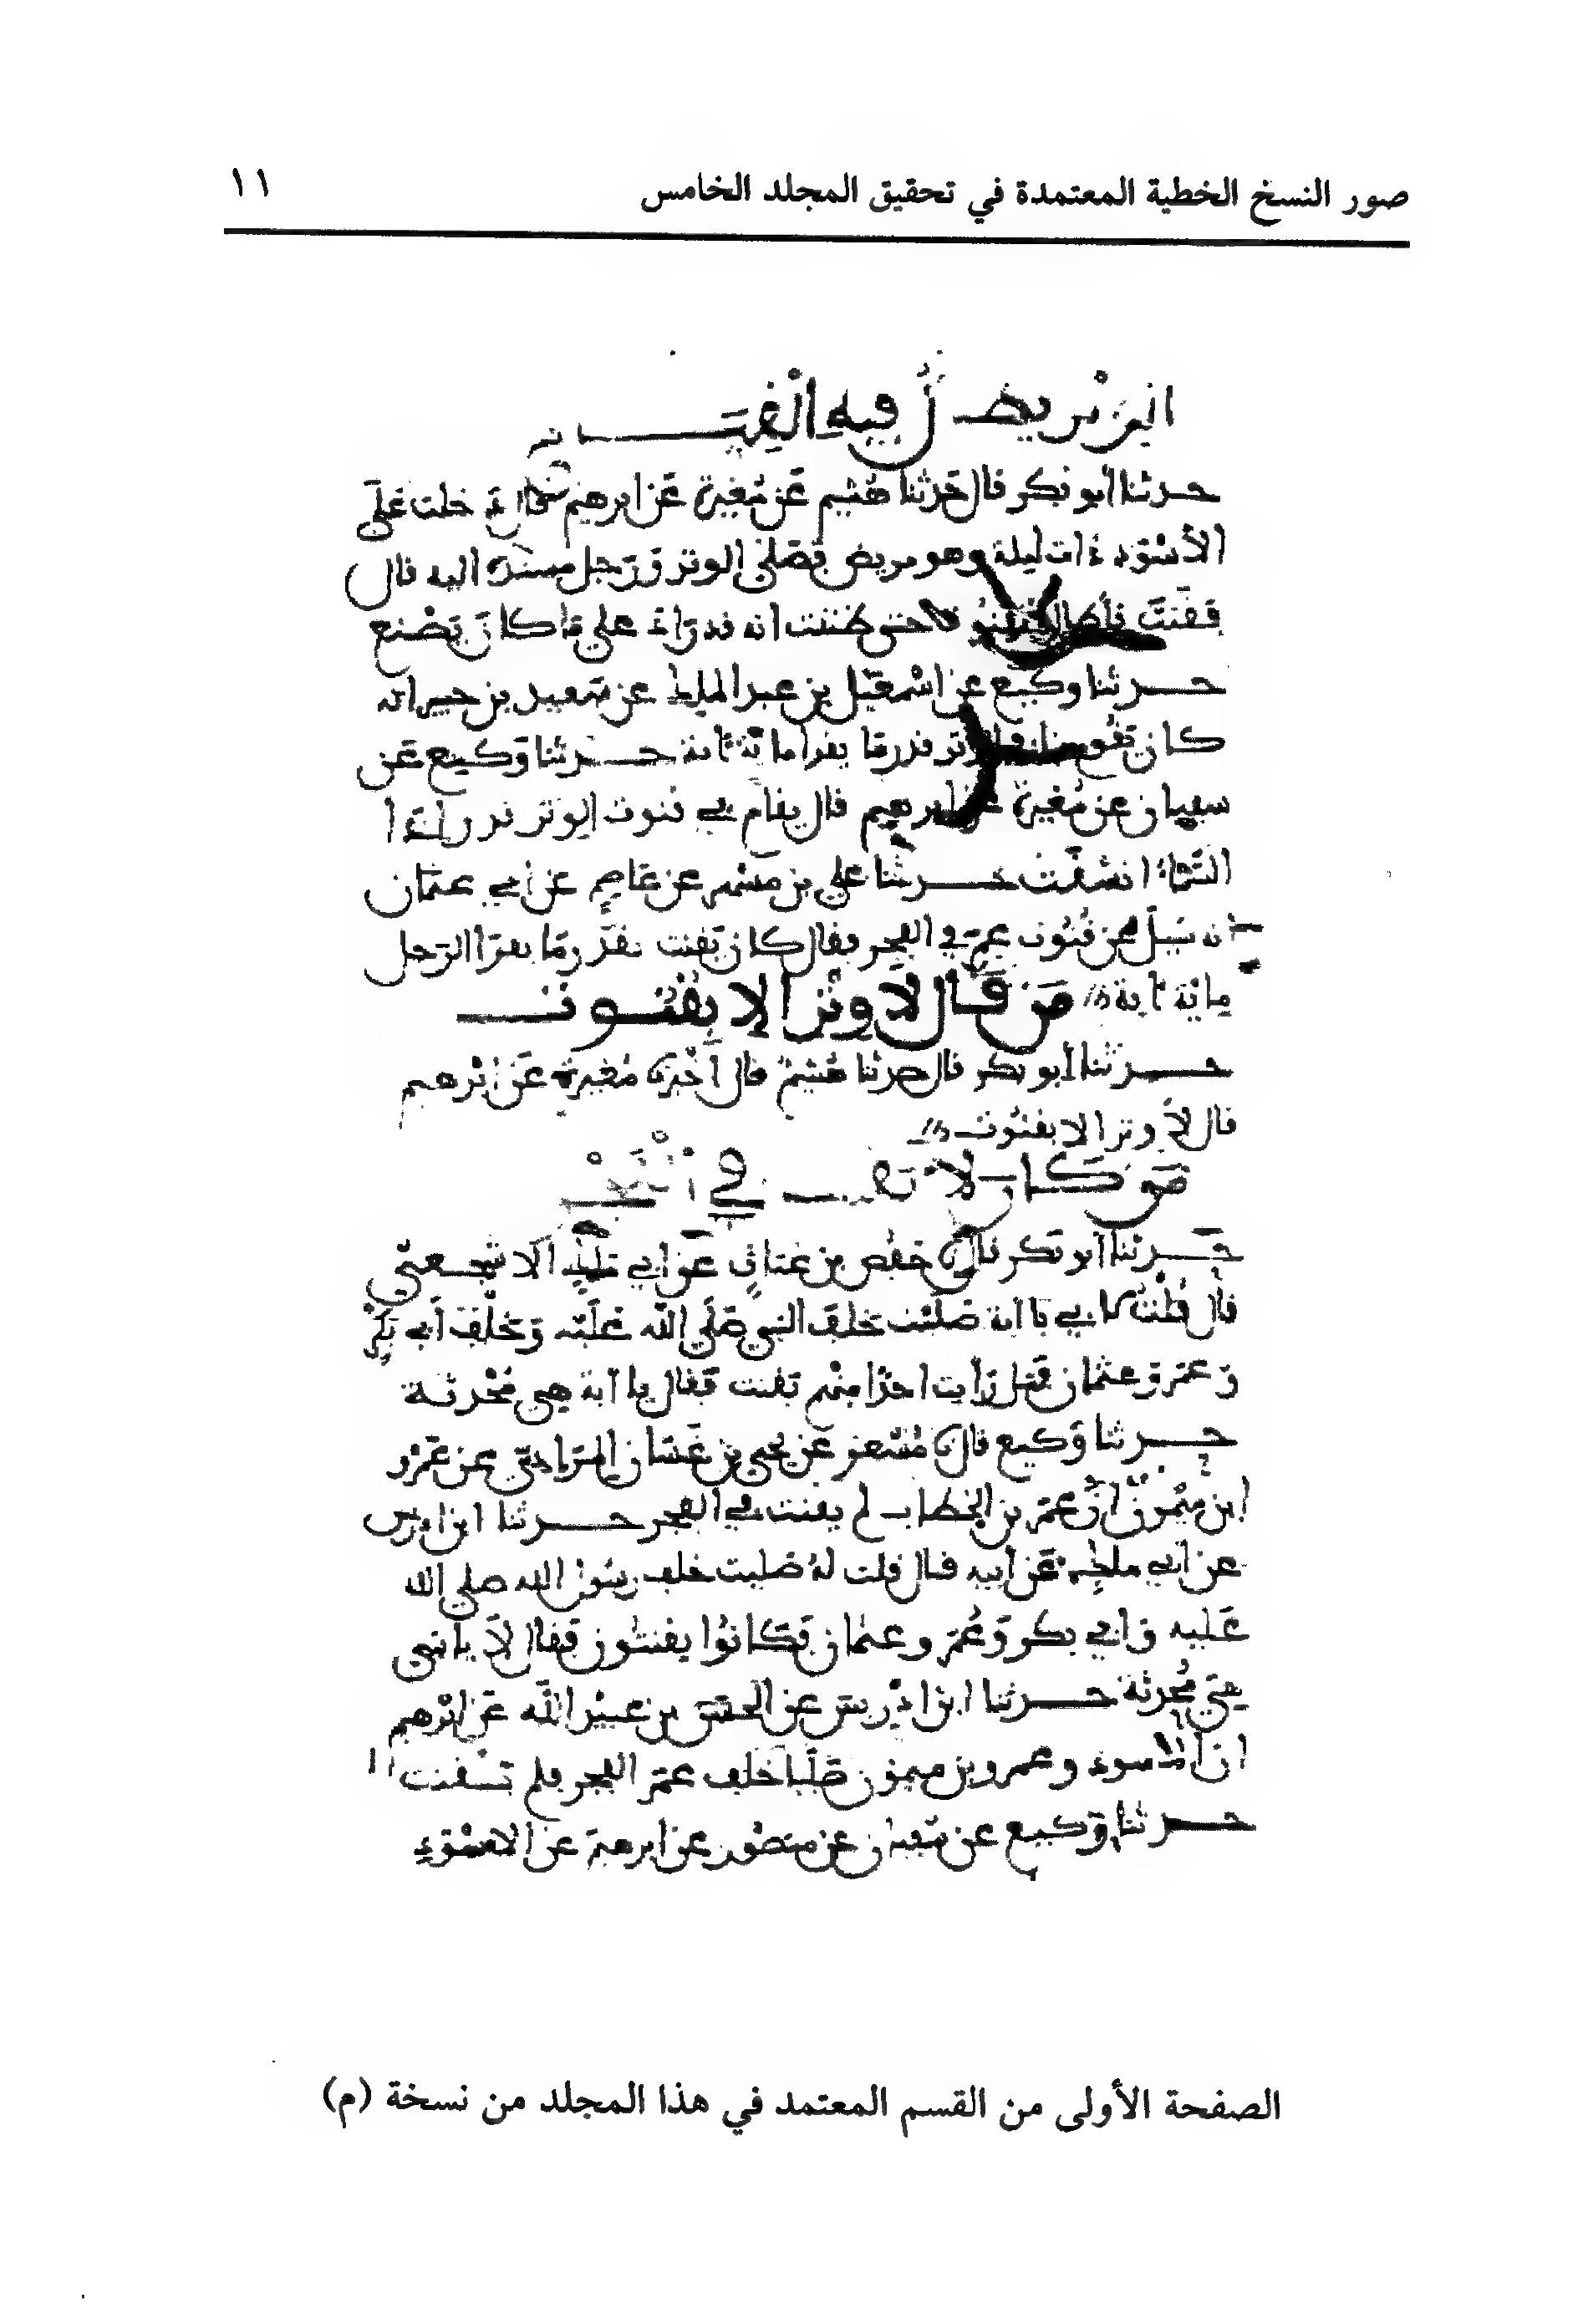 صور النسخ الخطية المعتمدة في تحقيق المجلد الخامس ١١
فيه القيام
حدثنا أبو بكر قال حدثنا هشيم عن مغيرة عن ابرهيم قال دخلت على
الأسود ذات ليلة وهو مريض فصلى الوتر ورجل مسنده اليه قال
فقنت فأطال القنوت حتى ظننت انه قد زاد على ما كان يصنع
حدثنا وكيع عن اسمعيل بن عبد الملك عن سعيد بن جبير انه
كان يقوم في الوتر قدر ما يقرا مائة ءاية حدثنا وكيع عن
سفيان عن مغيرة عن ابرهيم قال يقام في قنوت الوتر قدر إذا
السماء انشقت حدثنا علي بن مسهر عن عاصم عن أبي عثمان
انه سئل عن قنوت عمر في الفجر فقال كان يقنت بقدر ما يقرأ الرجل
مائة ءاية
من قال لا وتر الا بقنوت
حدثنا أبو بكر قال حدثنا هشيم قال أخبرنا مغيرة عن ابرهيم
قال لا وتر الا بقنوت
من كان لا يقنت في الفجر
حدثنا أبو بكر قال نا حفص بن غياث عن ابي ملك الاشجعي
قال قلت لابي يا ابة صليت خلف النبي صلى الله عليه وخلف أبي بكر
وعمر وعثمان فهل رأيت احدا منهم يقنت فقال يا ابة هي محدثة
حدثنا وكيع قال نا مسعر عن يحيى بن غسان المرادي عن عمرو
ابن ميمون ان عمر بن الخطاب لم يقنت في الفجر حدثنا ابن ادريس
عن ابي ملك عن أبيه قال قلت له صليت خلف رسول الله صلى الله
عليه وابي بكر وعمر وعثمان فكانوا يقنتون فقال لا يا بني
هي محدثة حدثنا ابن ادريس عن الحسن بن عبيد الله عن ابرهيم
ان الاسود وعمرو بن ميمون صليا خلف عمر الفجر فلم يقنت
حدثنا وكيع عن سفيان عن منصور عن ابرهيم عن الاسود
الصفحة الأولى من القسم المعتمد في هذا المجلد من نسخة (م)